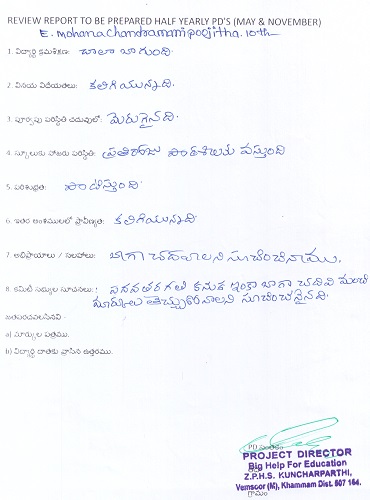 REVIEW REPORT TO BE PREPARED HALF YEARLY PD'S (MAY & NOVEMBER)
E. mohana chandramani poojitha. 10th
1. విద్యార్థి క్రమశిక్షణ: చాలా బాగుంది.
2. వినయ విధేయతలు: కలిగియున్నాది.
3. పూర్వపు పరిస్థితి చదువులో: మెరుగైనది.
4. స్కూలుకు హాజరు పరిస్థితి: ప్రతిరోజు పాఠశాలకు వస్తుంది
5. పరిశుభ్రత: పాటిస్తుంది.
6. ఇతర అంశములలో ప్రావీణ్యత: కలిగియున్నాది.
7. అభిప్రాయాలు / సలహాలు: బాగా చదవాలని సూచించినాము.
8. కమిటీ సభ్యుల సూచనలు: తరగతి కనుక ఇంకా బాగా చదివి మంచి
మార్కులు తెచ్చుకోవాలని సూచించనైనది.
జతపరచవలసినవి -
a) మార్కుల పత్రము.
b) విద్యార్థి దాతకు వ్రాసిన ఉత్తరము.
PD సంతకం
PROJECT DIRECTOR
Big Help For Education
Z.P.H.S. KUNCHARPARTHI,
Vemsoor (M), Khammam Dist. 507 164.
గ్రామం